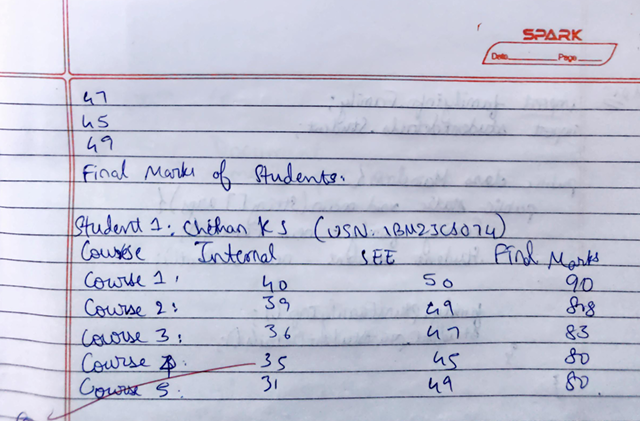 SPARK
Date Page
47
45
49
Final Marks of Students:
Student 1: Chethan K S (USN: 1BM23CS074)
Course Internal SEE Final Marks
Course 1: 40 50 90
Course 2: 39 49 88
Course 3: 36 47 83
Course 4: 35 45 80
Course 5: 31 49 80